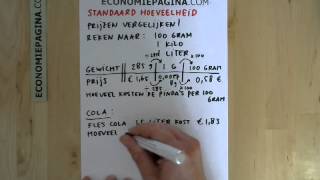 ECONOMIEPAGINA.COM
STANDAARD HOEVEELHEID
PRIJZEN VERGELIJKEN!
REKEN NAAR: 100 GRAM
1 KILO
1 LITER
GEWICHT 285 g 1 g 100 GRAM
PRIJS € 1,65 0,58 €
HOEVEEL KOSTEN DE PINDA'S PER 100
GRAM
COLA:
FLES COLA LITER KOST € 1,83
HOEVEEL